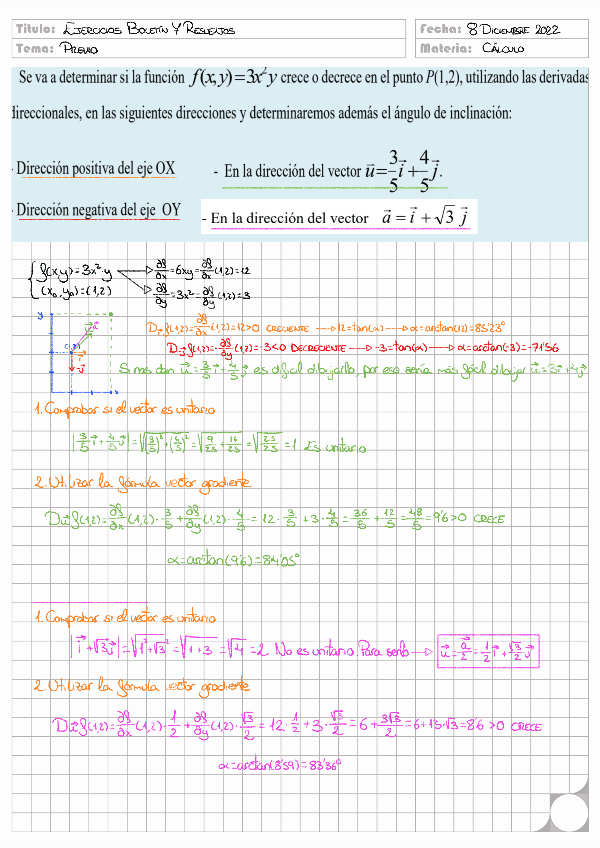 Título: EJERCICIOS BOLETÍN Y RESUELTOS
Fecha: 8 DICIEMBRE 2022
Tema: PREVIO
Materia: CÁLCULO
Se va a determinar si la función f(x,y)=3x²y crece o decrece en el punto P(1,2), utilizando las derivadas
direccionales, en las siguientes direcciones y determinaremos además el ángulo de inclinación:
- Dirección positiva del eje OX
- En la dirección del vector u⃗=3/5 i⃗+4/5 j⃗.
- Dirección negativa del eje OY
- En la dirección del vector a⃗ = i⃗ + √3 j⃗
f(x,y)=3x²·y → ∂f/∂x=6xy=∂f/∂x(1,2)=12
(x₀,y₀)=(1,2) → ∂f/∂y=3x²=∂f/∂y(1,2)=3
y
(1,2)
x
D i⃗ f(1,2)=∂f/∂x(1,2)=12>0 CRECIENTE → 12=tan(α) → α=arctan(12)=85'23°
D -j⃗ f(1,2)=-∂f/∂y(1,2)=-3<0 DECRECIENTE → -3=tan(α) → α=arctan(-3)=-71'56
Si nos dan u⃗=3/5 i⃗+4/5 j⃗ es difícil dibujarlo, por eso sería más fácil dibujar u⃗=3i⃗+4j⃗
1. Comprobar si el vector es unitario
|3/5 i⃗+4/5 j⃗|=√((3/5)²+(4/5)²)=√(9/25+16/25)=√(25/25)=1 Es unitario
2. Utilizar la fórmula vector gradiente
Du⃗f(1,2)=∂f/∂x(1,2)·3/5+∂f/∂y(1,2)·4/5=12·3/5+3·4/5=36/5+12/5=48/5=9'6>0 CRECE
α=arctan(9'6)=84'05°
1. Comprobar si el vector es unitario
|i⃗+√3j⃗|=√(1²+√3²)=√(1+3)=√4=2 No es unitario Para serlo → u⃗=a⃗/2=1/2 i⃗+√3/2 j⃗
2. Utilizar la fórmula vector gradiente
Du⃗f(1,2)=∂f/∂x(1,2)·1/2+∂f/∂y(1,2)·√3/2=12·1/2+3·√3/2=6+3√3/2=6+1'5·√3=8'6>0 CRECE
α=arctan(8'59)=83'36°